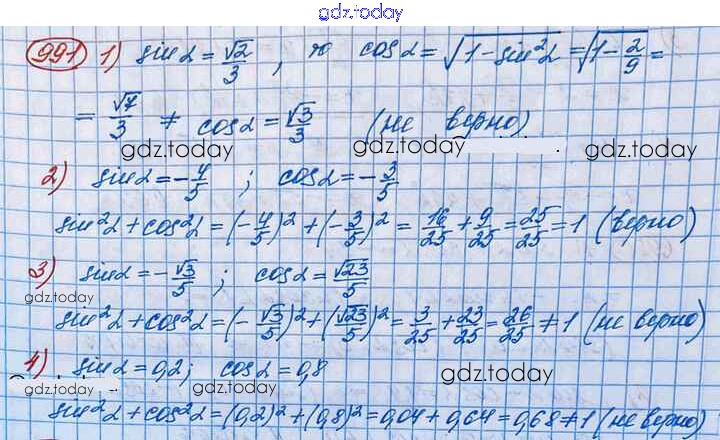 gdz.today
991 1) sin α = √2/3, то cos α = √(1 - sin²α) = √(1 - 2/9) =
= √7/3 ≠ cos α = √3/3 (не верно)
gdz.today gdz.today gdz.today
2) sin α = -4/5 ; cos α = -3/5
sin²α + cos²α = (-4/5)² + (-3/5)² = 16/25 + 9/25 = 25/25 = 1 (верно)
3) sin α = -√3/5 ; cos α = √23/5
gdz.today gdz.today
sin²α + cos²α = (-√3/5)² + (√23/5)² = 3/25 + 23/25 = 26/25 ≠ 1 (не верно)
4) sin α = 0,2; cos α = 0,8
gdz.today gdz.today gdz.today
sin²α + cos²α = (0,2)² + (0,8)² = 0,04 + 0,64 = 0,68 ≠ 1 (не верно)